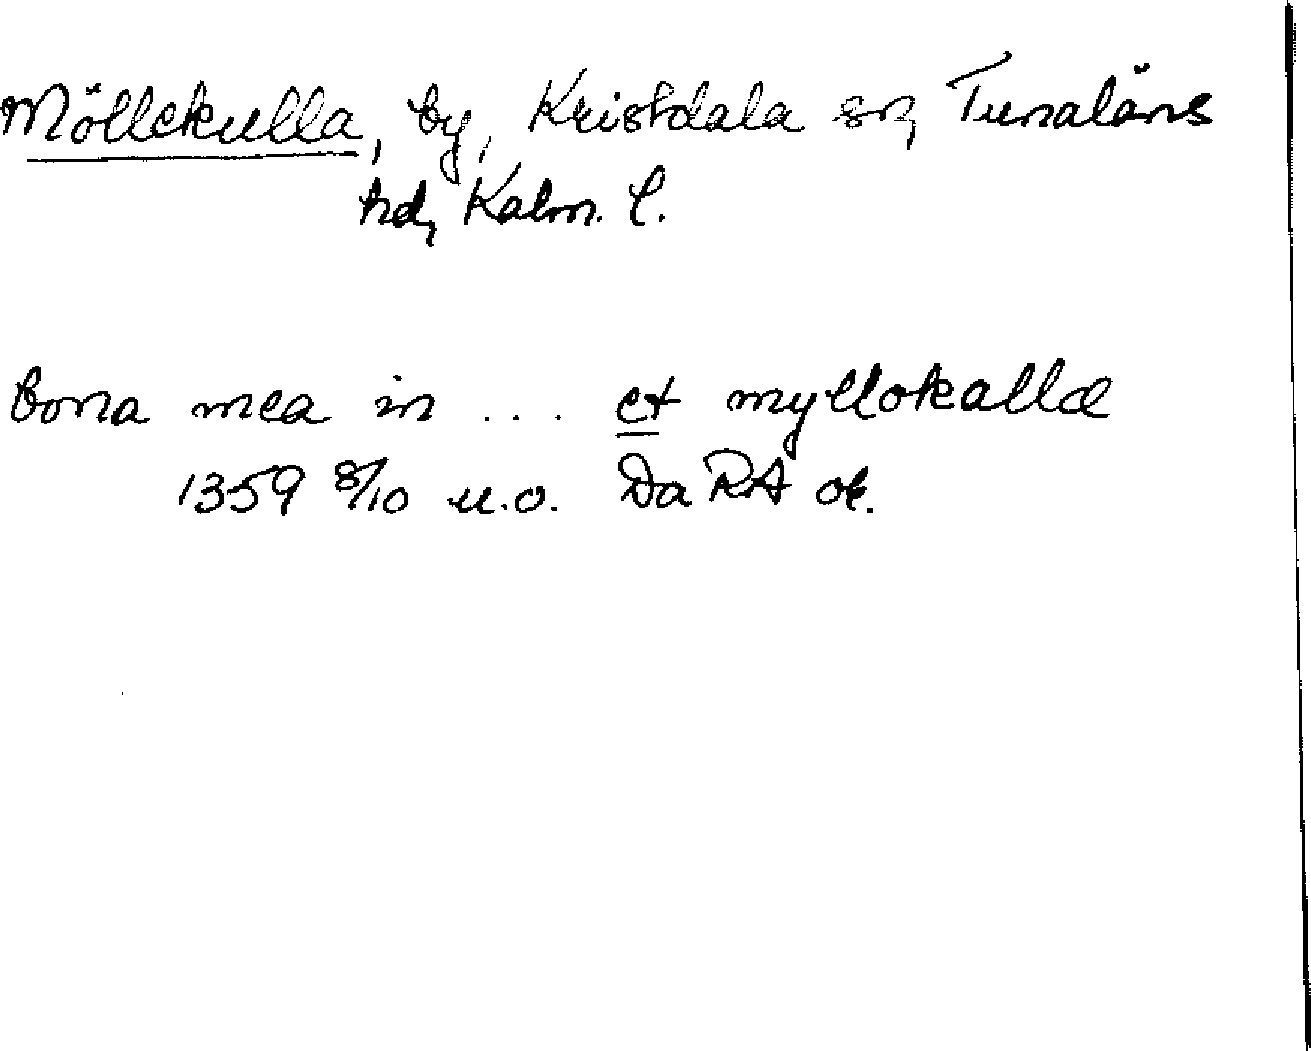 Möllekulla, by, Kristdala sn, Tunaläns
hd, Kalm. l.
bona mea in ... et myllokallæ
1359 8/10 u.o. Da RA or.